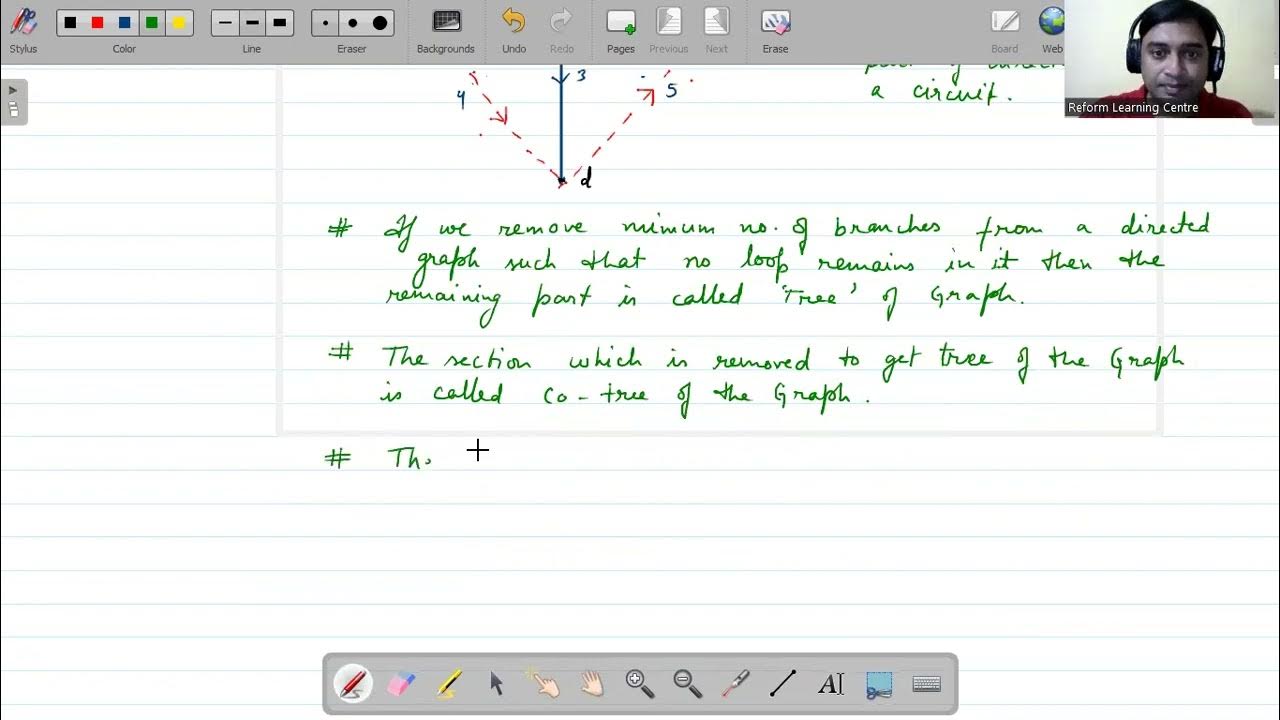 Stylus
Color
Line
Eraser
Backgrounds
Undo
Redo
Pages
Previous
Next
Erase
Board
Web
Reform Learning Centre
a circuit.
3
4
5
d
# If we remove mimum no. of branches from a directed
graph such that no loop remains in it then the
remaining part is called 'Tree' of Graph.
# The section which is removed to get tree of the Graph
is called co-tree of the Graph.
# Th.
AI